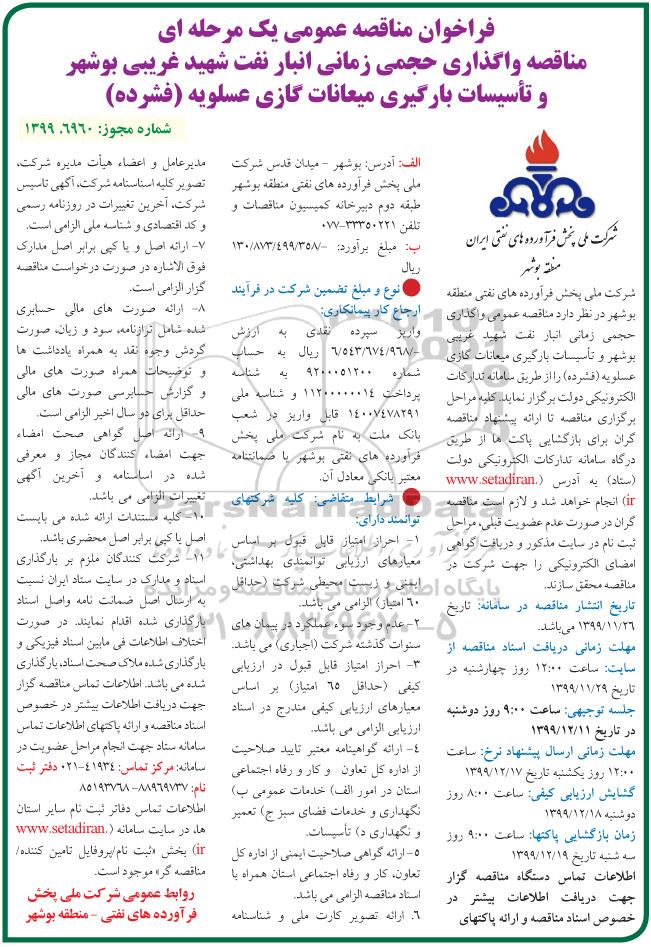 فراخوان مناقصه عمومی یک مرحله ای
مناقصه واگذاری حجمی زمانی انبار نفت شهید غریبی بوشهر
و تأسیسات بارگیری میعانات گازی عسلویه (فشرده)
شماره مجوز: ۱۳۹۹.۶۹۶۰
شرکت ملی پخش فرآورده های نفتی ایران
منطقه بوشهر
شرکت ملی پخش فرآورده های نفتی منطقه
بوشهر در نظر دارد مناقصه عمومی واگذاری
حجمی زمانی انبار نفت شهید غریبی
بوشهر و تأسیسات بارگیری میعانات گازی
عسلویه (فشرده) را از طریق سامانه تدارکات
الکترونیکی دولت برگزار نماید. کلیه مراحل
برگزاری مناقصه تا ارائه پیشنهاد مناقصه
گران برای بازگشایی پاکت ها از طریق
درگاه سامانه تدارکات الکترونیکی دولت
(ستاد) به آدرس (www.setadiran.
ir) انجام خواهد شد و لازم است مناقصه
گران در صورت عدم عضویت قبلی، مراحل
ثبت نام در سایت مذکور و دریافت گواهی
امضای الکترونیکی را جهت شرکت در
مناقصه محقق سازند.
تاریخ انتشار مناقصه در سامانه: تاریخ
۱۳۹۹/۱۱/۲۶ می‌باشد.
مهلت زمانی دریافت اسناد مناقصه از
سایت: ساعت ۱۲:۰۰ روز چهارشنبه در
تاریخ ۱۳۹۹/۱۱/۲۹
جلسه توجیهی: ساعت ۹:۰۰ روز دوشنبه
در تاریخ ۱۳۹۹/۱۲/۱۱
مهلت زمانی ارسال پیشنهاد نرخ: ساعت
۱۲:۰۰ روز یکشنبه تاریخ ۱۳۹۹/۱۲/۱۷
گشایش ارزیابی کیفی: ساعت ۸:۰۰ روز
دوشنبه ۱۳۹۹/۱۲/۱۸
زمان بازگشایی پاکتها: ساعت ۹:۰۰ روز
سه شنبه تاریخ ۱۳۹۹/۱۲/۱۹
اطلاعات تماس دستگاه مناقصه گزار
جهت دریافت اطلاعات بیشتر در
خصوص اسناد مناقصه و ارائه پاکتهای
الف: آدرس: بوشهر – میدان قدس شرکت
ملی پخش فرآورده های نفتی منطقه بوشهر
طبقه دوم دبیرخانه کمیسیون مناقصات و
تلفن ۳۳۳۵۰۲۲۱-۰۷۷
ب: مبلغ برآورد: -/۱۳۰/۸۷۳/۴۹۹/۳۵۸
ریال
نوع و مبلغ تضمین شرکت در فرآیند
ارجاع کار پیمانکاری:
واریز سپرده نقدی به ارزش
-/۶/۵۴۳/۶۷۴/۹۶۸ ریال به حساب
شماره ۹۲۰۰۰۵۱۲۰۰ به شناسه
پرداخت ۱۱۲۰۰۰۰۰۰۱۴ و شناسه ملی
۱۴۰۰۷۴۷۸۲۹۱ قابل واریز در شعب
بانک ملت به نام شرکت ملی پخش
فرآورده های نفتی بوشهر یا ضمانتنامه
معتبر بانکی معادل آن.
شرایط متقاضی: کلیه شرکتهای
توانمند دارای:
۱- احراز امتیاز قابل قبول بر اساس
معیارهای ارزیابی توانمندی بهداشتی،
ایمنی و زیست محیطی شرکت (حداقل
۶۰ امتیاز) الزامی می باشد.
۲-عدم وجود سوء عملکرد در پیمان های
سنوات گذشته شرکت (اجباری) می باشد.
۳- احراز امتیاز قابل قبول در ارزیابی
کیفی (حداقل ۶۵ امتیاز) بر اساس
معیارهای ارزیابی کیفی مندرج در اسناد
ارزیابی الزامی می باشد.
۴- ارائه گواهینامه معتبر تایید صلاحیت
از اداره کل تعاون و کار و رفاه اجتماعی
استان در امور الف) خدمات عمومی ب)
نگهداری و خدمات فضای سبز ج) تعمیر
و نگهداری د) تأسیسات.
۵-ارائه گواهی صلاحیت ایمنی از اداره کل
تعاون، کار و رفاه اجتماعی استان همراه با
اسناد مناقصه الزامی می باشد.
۶. ارائه تصویر کارت ملی و شناسنامه
مدیرعامل و اعضاء هیأت مدیره شرکت،
تصویر کلیه اسناسنامه شرکت، آگهی تاسیس
شرکت، آخرین تغییرات در روزنامه رسمی
و کد اقتصادی و شناسه ملی الزامی است.
۷- ارائه اصل و یا کپی برابر اصل مدارک
فوق الاشاره در صورت درخواست مناقصه
گزار الزامی است.
۸- ارائه صورت های مالی حسابری
شده شامل ترازنامه، سود و زیان، صورت
گردش وجوه نقد به همراه یادداشت ها
و توضیحات همراه صورت های مالی
و گزارش حسابرسی صورت های مالی
حداقل برای دو سال اخیر الزامی است.
۹- ارائه اصل گواهی صحت امضاء
جهت امضاء کنندگان مجاز و معرفی
شده در اساسنامه و آخرین آگهی
تغییرات الزامی می باشد.
۱۰-کلیه مستندات ارائه شده می بایست
اصل یا کپی برابر اصل محضری باشد.
۱۱- شرکت کنندگان ملزم بر بارگذاری
اسناد و مدارک در سایت ستاد ایران نسبت
به ارسال اصل ضمانت نامه واصل اسناد
بارگذاری شده اقدام نمایند. در صورت
اختلاف اطلاعات فی مابین اسناد فیزیکی و
بارگذاری شده ملاک صحت اسناد، بارگذاری
شده می باشد. اطلاعات تماس مناقصه گزار
جهت دریافت اطلاعات بیشتر در خصوص
اسناد مناقصه و ارائه پاکتهای اطلاعات تماس
سامانه ستاد جهت انجام مراحل عضویت در
سامانه: مرکز تماس: ۴۱۹۳۴-۰۲۱ دفتر ثبت
نام: ۸۸۹۶۹۷۳۷– ۸۵۱۹۳۷۶۸
اطلاعات تماس دفاتر ثبت نام سایر استان
ها، در سایت سامانه (www.setadiran.
ir) بخش «ثبت نام/پروفایل تامین کننده/
مناقصه گر» موجود است.
روابط عمومی شرکت ملی پخش
فرآورده های نفتی - منطقه بوشهر